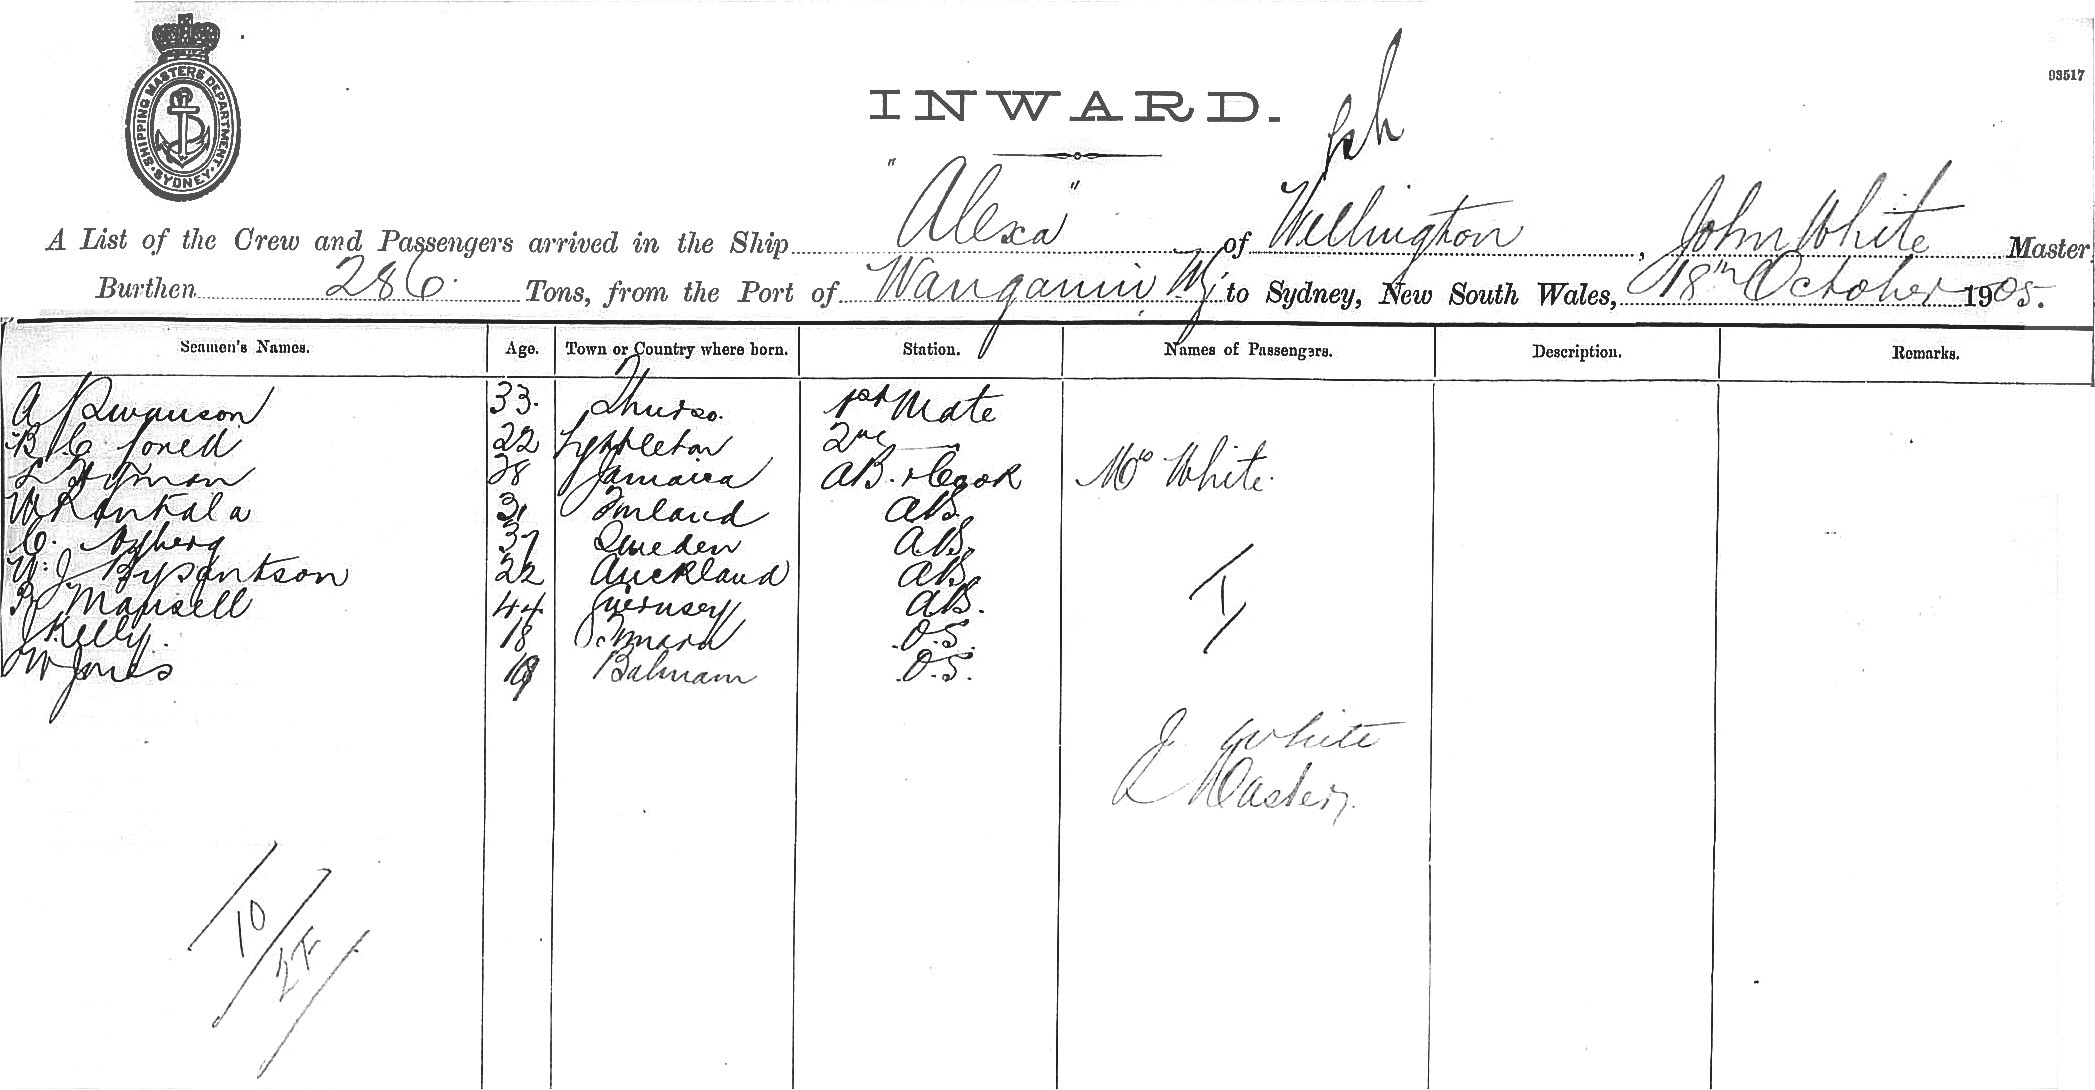 SHIPPING MASTERS DEPARTMENT · SYDNEY ·
03517
INWARD.
A List of the Crew and Passengers arrived in the Ship "Alexa" of Wellington, John White Master
Burthen 286 Tons, from the Port of Wanganui, NZ to Sydney, New South Wales, 18th October 1905.
Seamen's Names. Age. Town or Country where born. Station. Names of Passengers. Description. Remarks.
A Swanson 33. Thurso. 1st Mate
B C 22 Lyttleton 2nd —
L Hyman 28 Jamaica AB. & Cook Mrs White.
W Rantala 31 Finland AB.
C. Nyberg 37 Sweden AB.
W. J 22 Auckland AB.
Mansell 44 Guernsey AB.
J Kelly 18 O.S.
W Jones Balmain O.S.
1
J White
Master
10